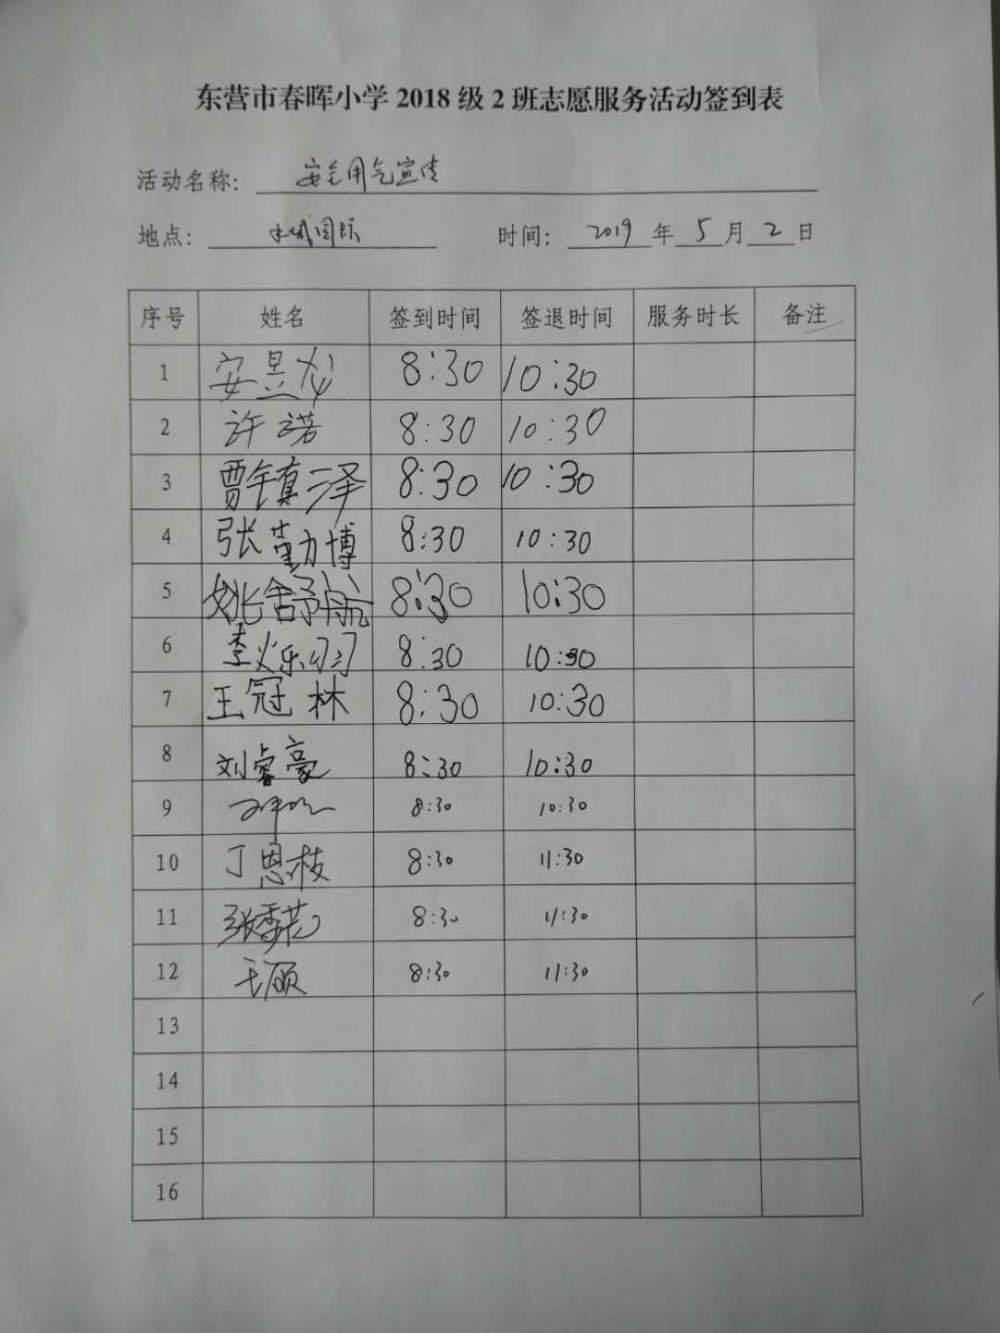 东营市春晖小学2018级2班志愿服务活动签到表
活动名称: 安全用气宣传
地点: 水城国际 时间: 2019年5月2日
序号 姓名 签到时间 签退时间 服务时长 备注
1 安昱龙 8:30 10:30
2 许诺 8:30 10:30
3 贾镇泽 8:30 10:30
4 张勤博 8:30 10:30
5 姚舒航 8:30 10:30
6 李烁 8:30 10:30
7 王冠林 8:30 10:30
8 刘睿豪 8:30 10:30
9 8:30 10:30
10 丁恩枝 8:30 11:30
11 张季花 8:30 11:30
12 王硕 8:30 11:30
13
14
15
16